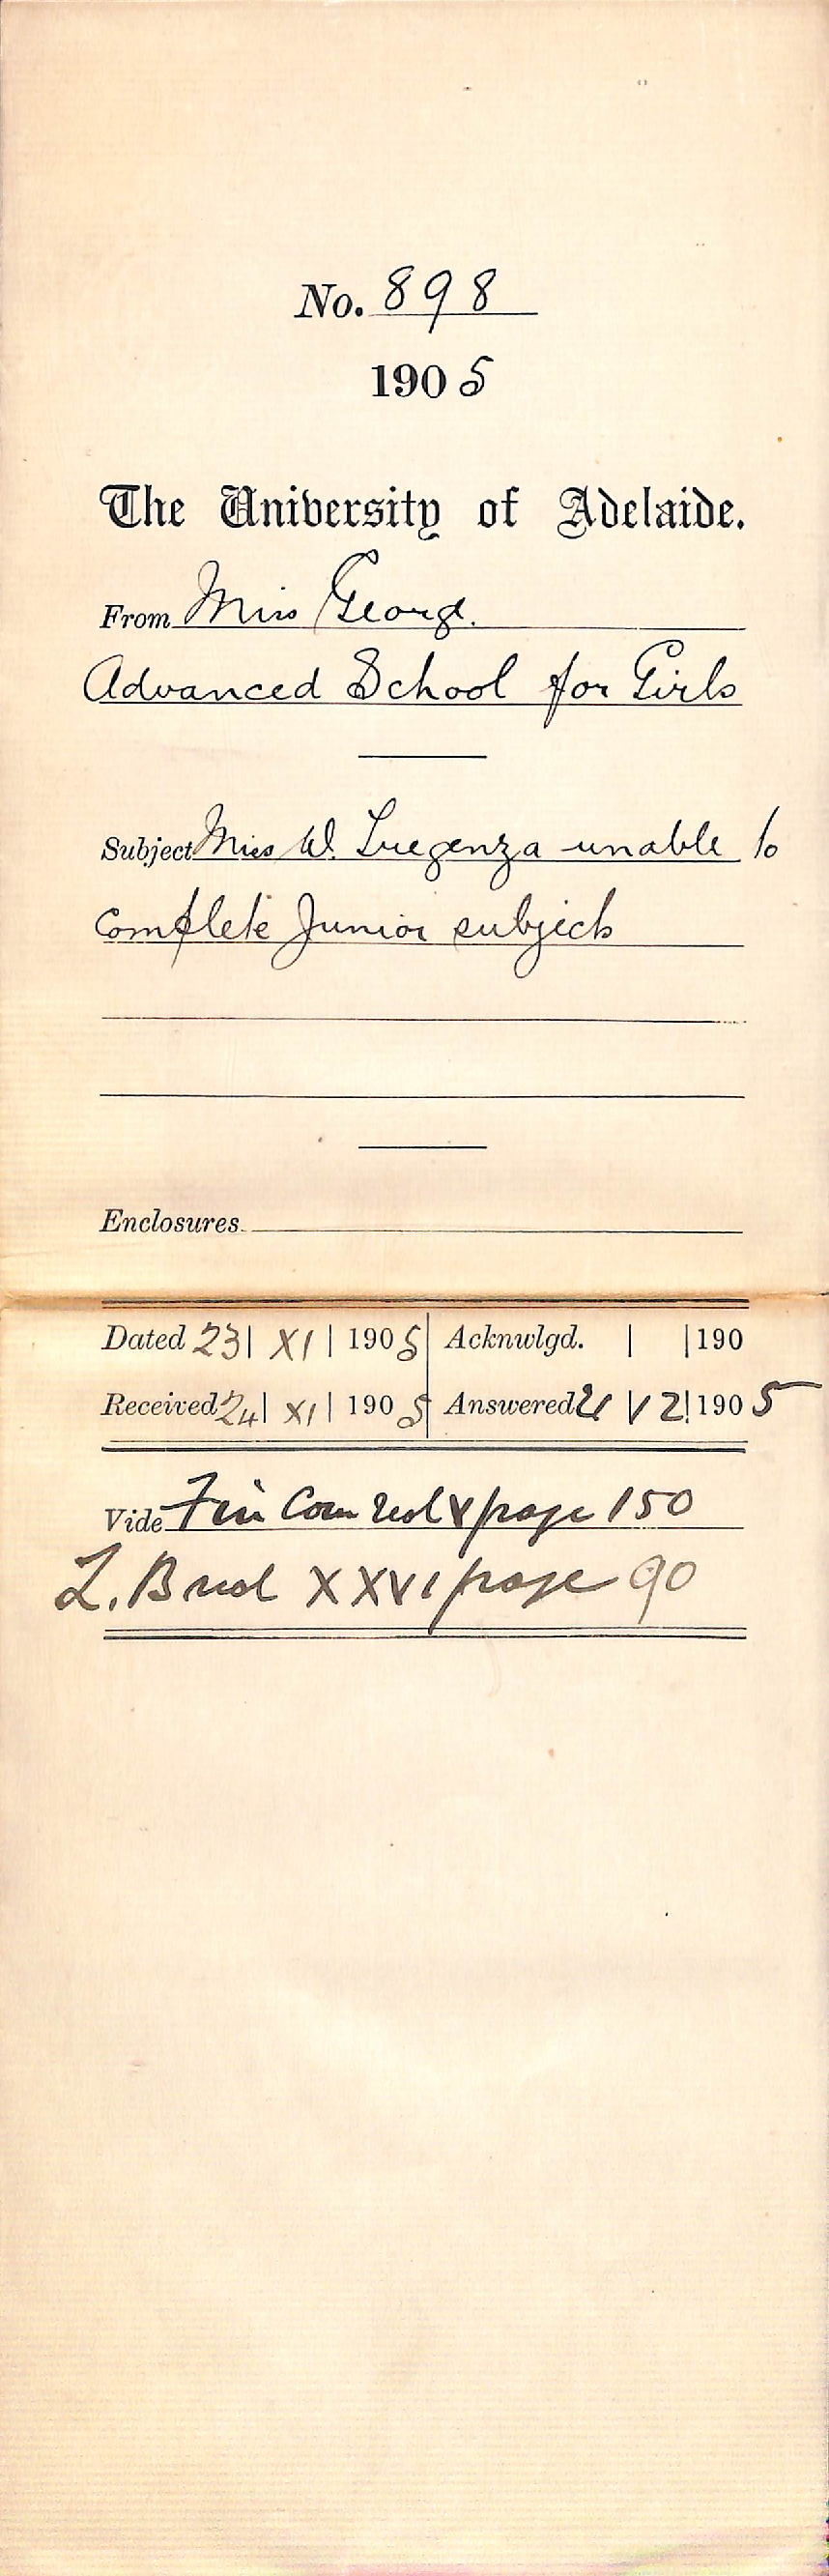 No. 898
1905
The University of Adelaide.
From Miss George.
Advanced School for Girls
Subject Miss W. Tregenza unable to
complete Junior subjects
Enclosures
Dated 23| XI | 1905 Acknwlgd. | |190
Received 24| XI | 1905 Answered | 12| 1905
Vide Fin Com vol V page 150
L. B vol XXVI page 90